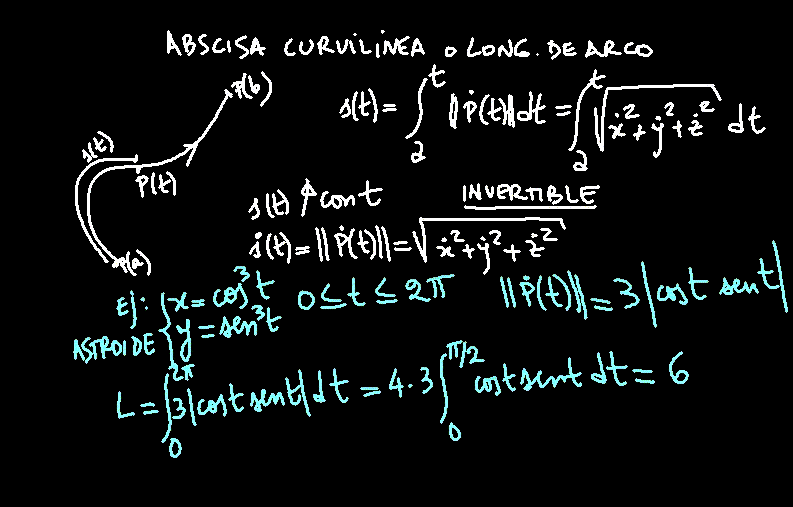 ABSCISA CURVILÍNEA o LONG. DE ARCO
P(b)
s(t)
P(t)
P(a)
s(t) = ∫ₐᵗ ‖Ṗ(t)‖dt = ∫ₐᵗ √(ẋ²+ẏ²+ż²) dt
s(t) ↑ con t INVERTIBLE
ṡ(t) = ‖Ṗ(t)‖ = √(ẋ²+ẏ²+ż²)
Ej: ASTROIDE { x = cos³t
y = sen³t
0 ≤ t ≤ 2π ‖Ṗ(t)‖ = 3|cost sent|
L = ∫₀^2π 3|cost sent|dt = 4·3 ∫₀^π/2 cost sent dt = 6